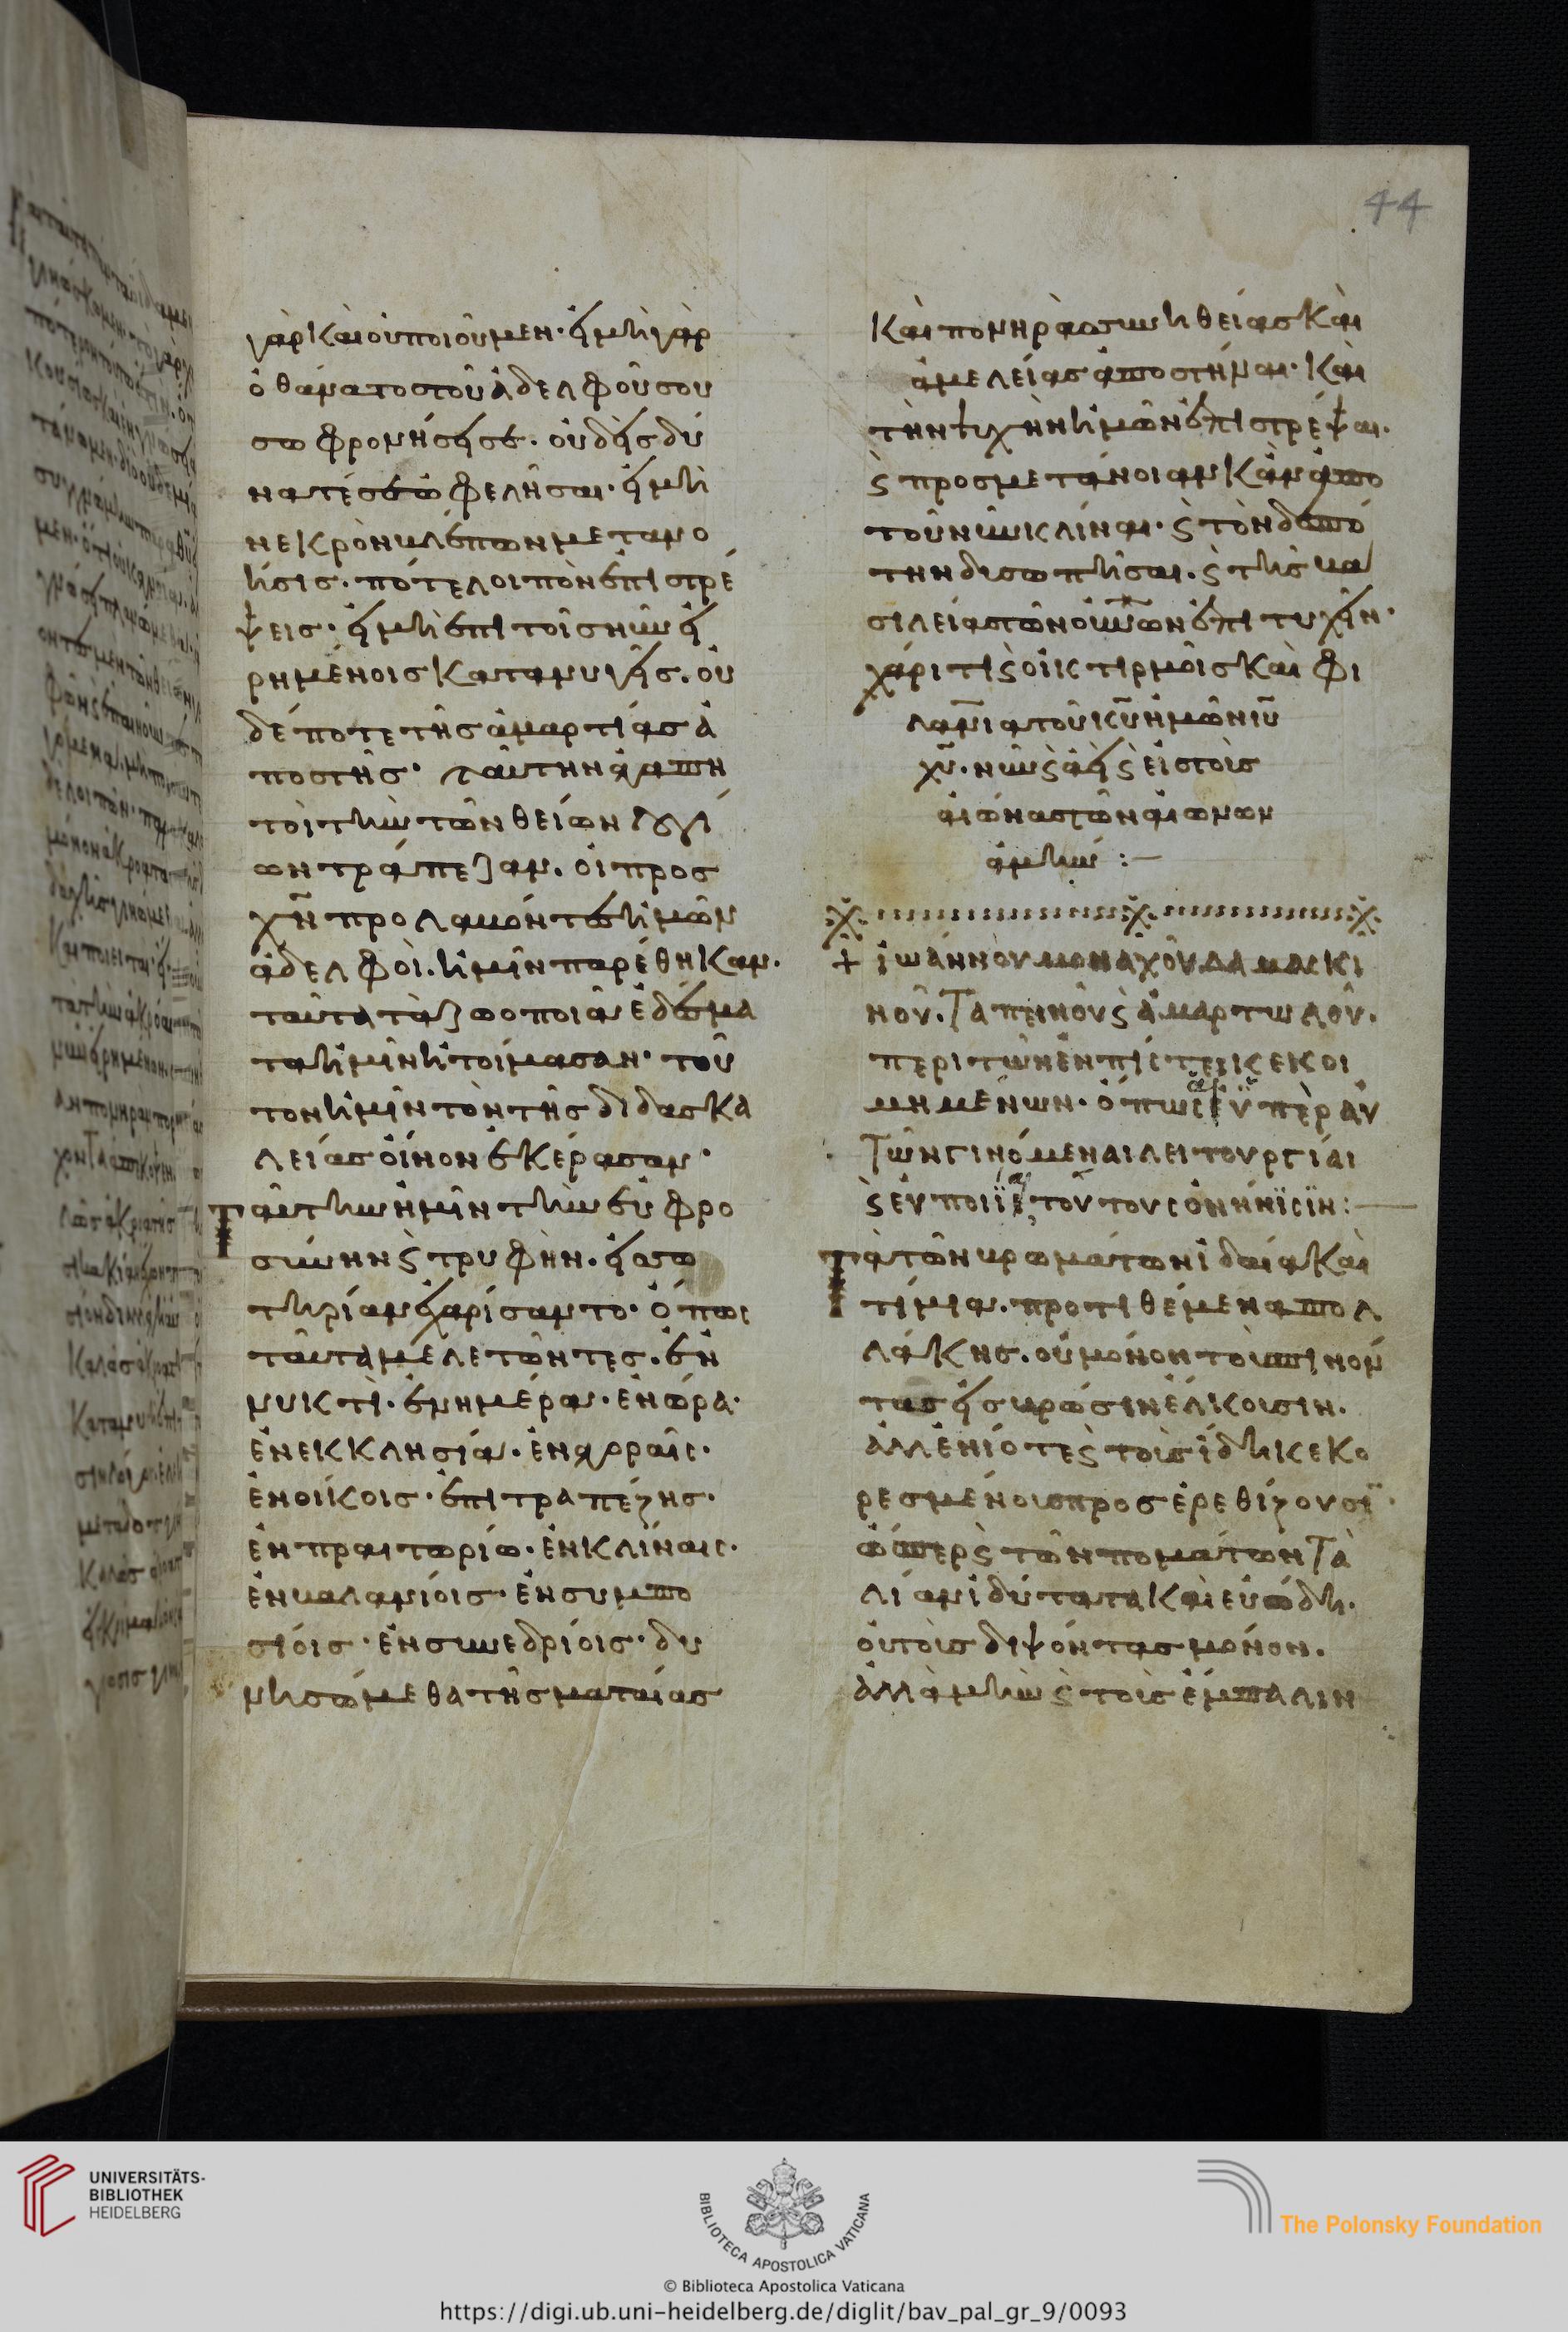 44
γὰρ καὶ οὐ ποιοῦμεν· εἰ μὴ γὰρ
ὁ θάνατος τοῦ ἀδελφοῦ σου
σωφρονήσει σε· οὐδείς δύ
ναταί σε ὠφελῆσαι· εἰ μὴ
νεκρὸν βλέπων μετανο
ήσις· πότε λοιπὸν ἐπιστρέ
ψεις· εἰ μὴ ἐπὶ τοῖς νῦν εἰ
ρημένοις κατανυγεῖς· οὐ
δέποτε τῆς ἁμαρτίας ἀ
ποστῆς· ταύτην ἀγαπη
τοὶ τὴν τῶν θείων λογί
ων τράπεζαν· οἱ προς
χν προλαβόντες ἡμῶν
ἀδελφοὶ· ἡμῖν παρέθηκαν·
ταῦτα τὰ ζωοποιὰ ἐδέσμα
τα ἡμῖν ἡτοίμασαν· τοῦ
τον ἡμῖν τὸν τῆς διδασκα
λείας οἶνον ἐκέρασαν·
Ταύτην ἡμῖν τὴν εὐφρο
σύνην ϛ τρυφὴν· εἰς σω
τηρίαν ἐχαρίσαντο· ὅπως
ταῦτα μελετῶντες· ἐν
νυκτὶ· ἐν ημέρα· ἐν ὥρα·
ἐν εκκλησία· ἐν ἀγοραῖς·
ἐν οίκοις· ἐπὶ τραπέζης·
ἐν πραιτωρίω· ἐν κλίναις·
ἐν βαλανίοις· ἐν συμπο
σίοις· ἐν συνεδρίοις· δυ
νησώμεθα τῆς ματαίας
καὶ πονηρᾶς συνηθείας καὶ
ἀμελείας ἀποστῆναι· καὶ
τὴν ψυχὴν ἡμῶν ἐπιστρέψαι·
ϛ προς μετάνοιαν κἂν ἀπο
τοῦ νῦν κλίναι· ϛ τὸν δεσπό
την δυσωπῆσαι· ϛ τῆς βα
σιλείας τῶν οὐνῶν ἐπιτυχεῖν·
χάριτι ϛ οἰκτιρμοῖς καὶ φι
λανιᾳ τοῦ κυ ἡμῶν ιυ
χυ· νῦν ϛ ἀεὶ ϛ εἰς τοὺς
αἰώνας τῶν αἰώνων
ἀμήν :—
+ ἰωάννου μοναχοῦ δαμασκι
νοῦ· ταπεινοῦ ϛ ἁμαρτωλοῦ·
περι τῶν ἐν πίστει κεκοι
μημένων· ὅπως αἱ ὑπὲρ αὐ
τῶν γινόμεναι λειτουργίαι
ϛ εὐποιΐαι τούτους ὀνήνϊσϊν :—
Τὰ τῶν βρωμάτων ἰδαία καὶ
τίμια· προτιθέμενα πολ
λάκης· οὐ μόνον τοὺς πινον
τας εἰς βρῶσιν ἐλκουσιν·
ἀλλ ἐνίοτε ϛ τοὺς ἰδη κεκο
ρεσμένους προσερεθίζουσϊ·
ὥσπερ ϛ τῶν πομάτων τὰ
λίαν ἰδύτατα καὶ εὐώδη·
οὐ τοὺς διψόντας μόνον·
ἀλλὰ μὴν ϛ τοὺς έμπαλιν
UNIVERSITÄTS-
BIBLIOTHEK
HEIDELBERG
BIBLIOTECA APOSTOLICA VATICANA
© Biblioteca Apostolica Vaticana
The Polonsky Foundation
https://digi.ub.uni-heidelberg.de/diglit/bav_pal_gr_9/0093